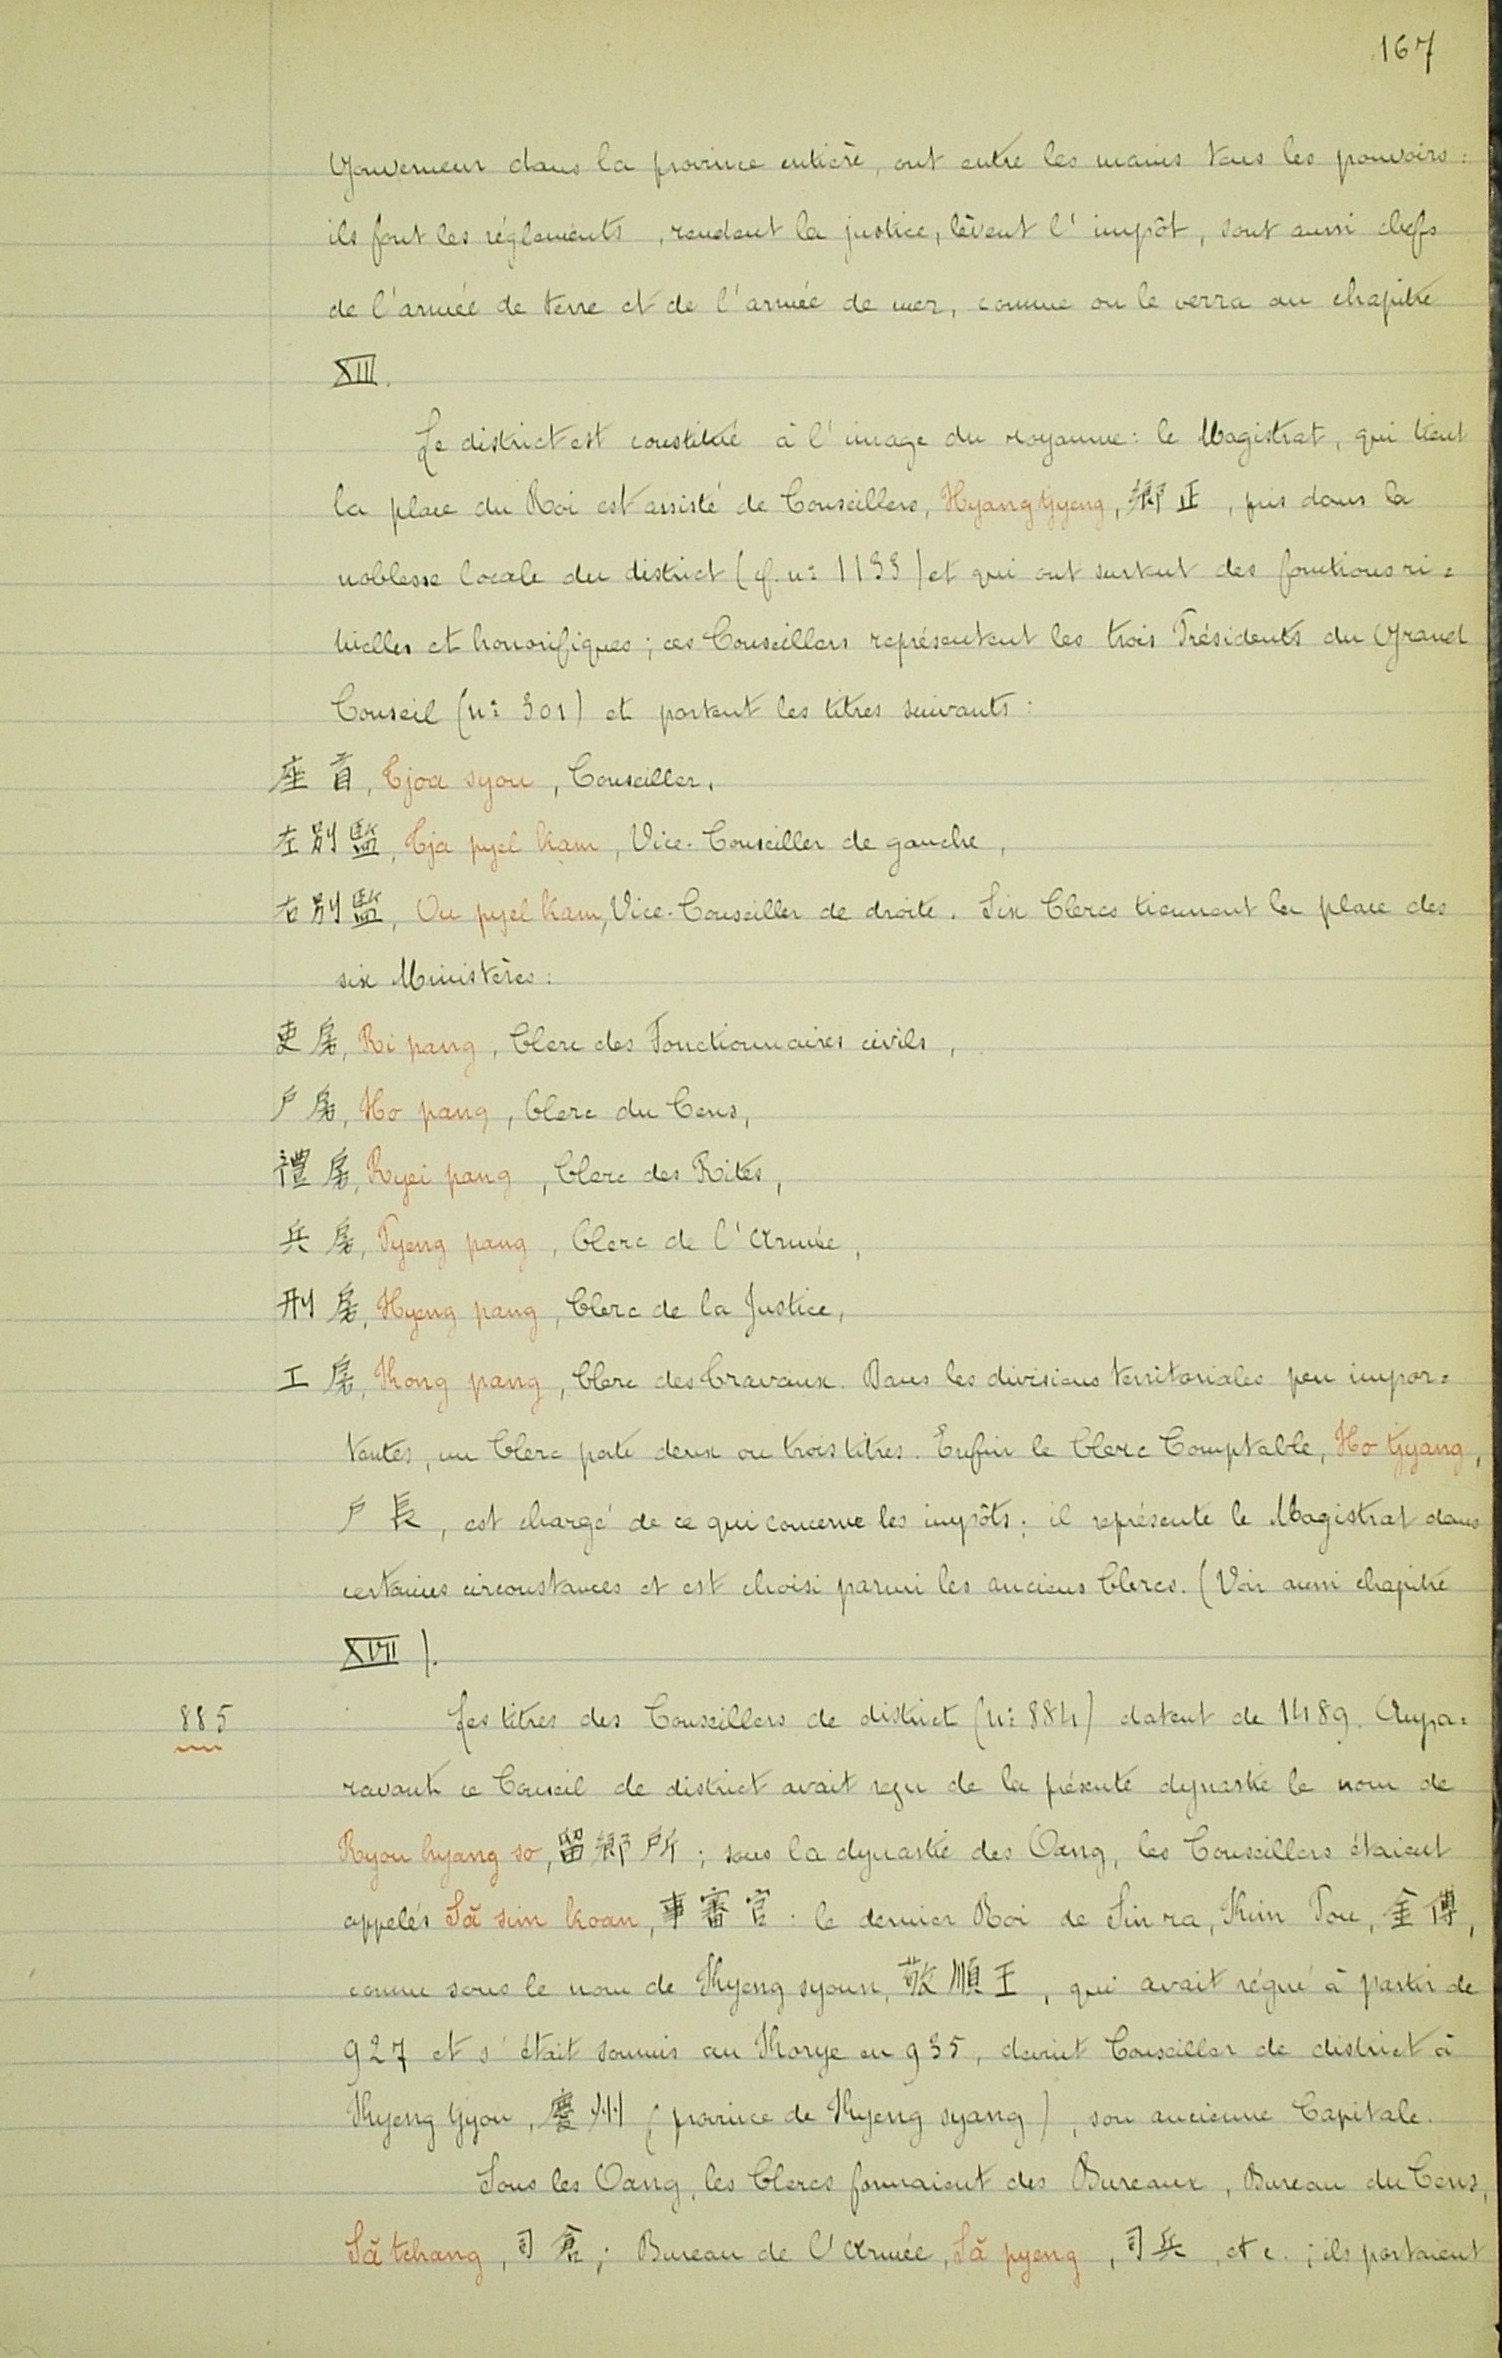 167
Gouverneur dans la province entière, ont entre les mains tous les pouvoirs:
ils font les réglements, rendent la justice, lèvent l'impôt, sont aussi chefs
de l'armée de terre et de l'armée de mer, comme on le verra au chapitre
XIII.
Le district est constitué à l'image du royaume: le Magistrat, qui tient
la place du Roi est assisté de Conseillers, Hyang tjyeng, 鄉正, pris dans la
noblesse locale du district (cf. nº 1133) et qui ont surtout des fonctions ri=
tuelles et honorifiques; ces Conseillers représentent les trois Présidents du Grand
Conseil (nº 301) et portent les titres suivants:
座首, Tjoa syou, Conseiller,
左別監, Tja pyel kam, Vice-Conseiller de gauche,
右別監, Ou pyel kam, Vice-Conseiller de droite. Six Clercs tiennent la place des
six Ministères:
吏房, Ri pang, Clerc des Fonctionnaires civils,
戶房, Ho pang, Clerc du Cens,
禮房, Ryei pang, Clerc des Rites,
兵房, Pyeng pang, Clerc de l'Armée,
刑房, Hyeng pang, Clerc de la Justice,
工房, Kong pang, Clerc des Travaux. Dans les divisions territoriales peu impor=
tantes, un Clerc porte deux ou trois titres. Enfin le Clerc Comptable, Ho tjyang,
戶長, est chargé de ce qui concerne les impôts; il représente le Magistrat dans
certaines circonstances et est choisi parmi les anciens Clercs. (Voir aussi chapitre
XVII).
885 Les titres des Conseillers de district (nº 884) datent de 1489. Aupa=
ravant ce Conseil de district avait reçu de la présente dynastie le nom de
Ryou hyang so, 留鄉所; sous la dynastie des Oang, les Conseillers étaient
appelés Să sim koan, 事審官: le dernier Roi de Sin ra, Kim Pou, 金傅,
connu sous le nom de Kyeng syoun, 敬順王, qui avait régné à partir de
927 et s'était soumis au Korye en 935, devint Conseiller de district à
Kyeng tjyou, 慶州 (province de Kyeng syang), son ancienne Capitale.
Sous les Oang, les Clercs formaient des Bureaux, Bureau du Cens,
Să tchang, 司倉; Bureau de l'Armée, Să pyeng, 司兵, etc.; ils portaient